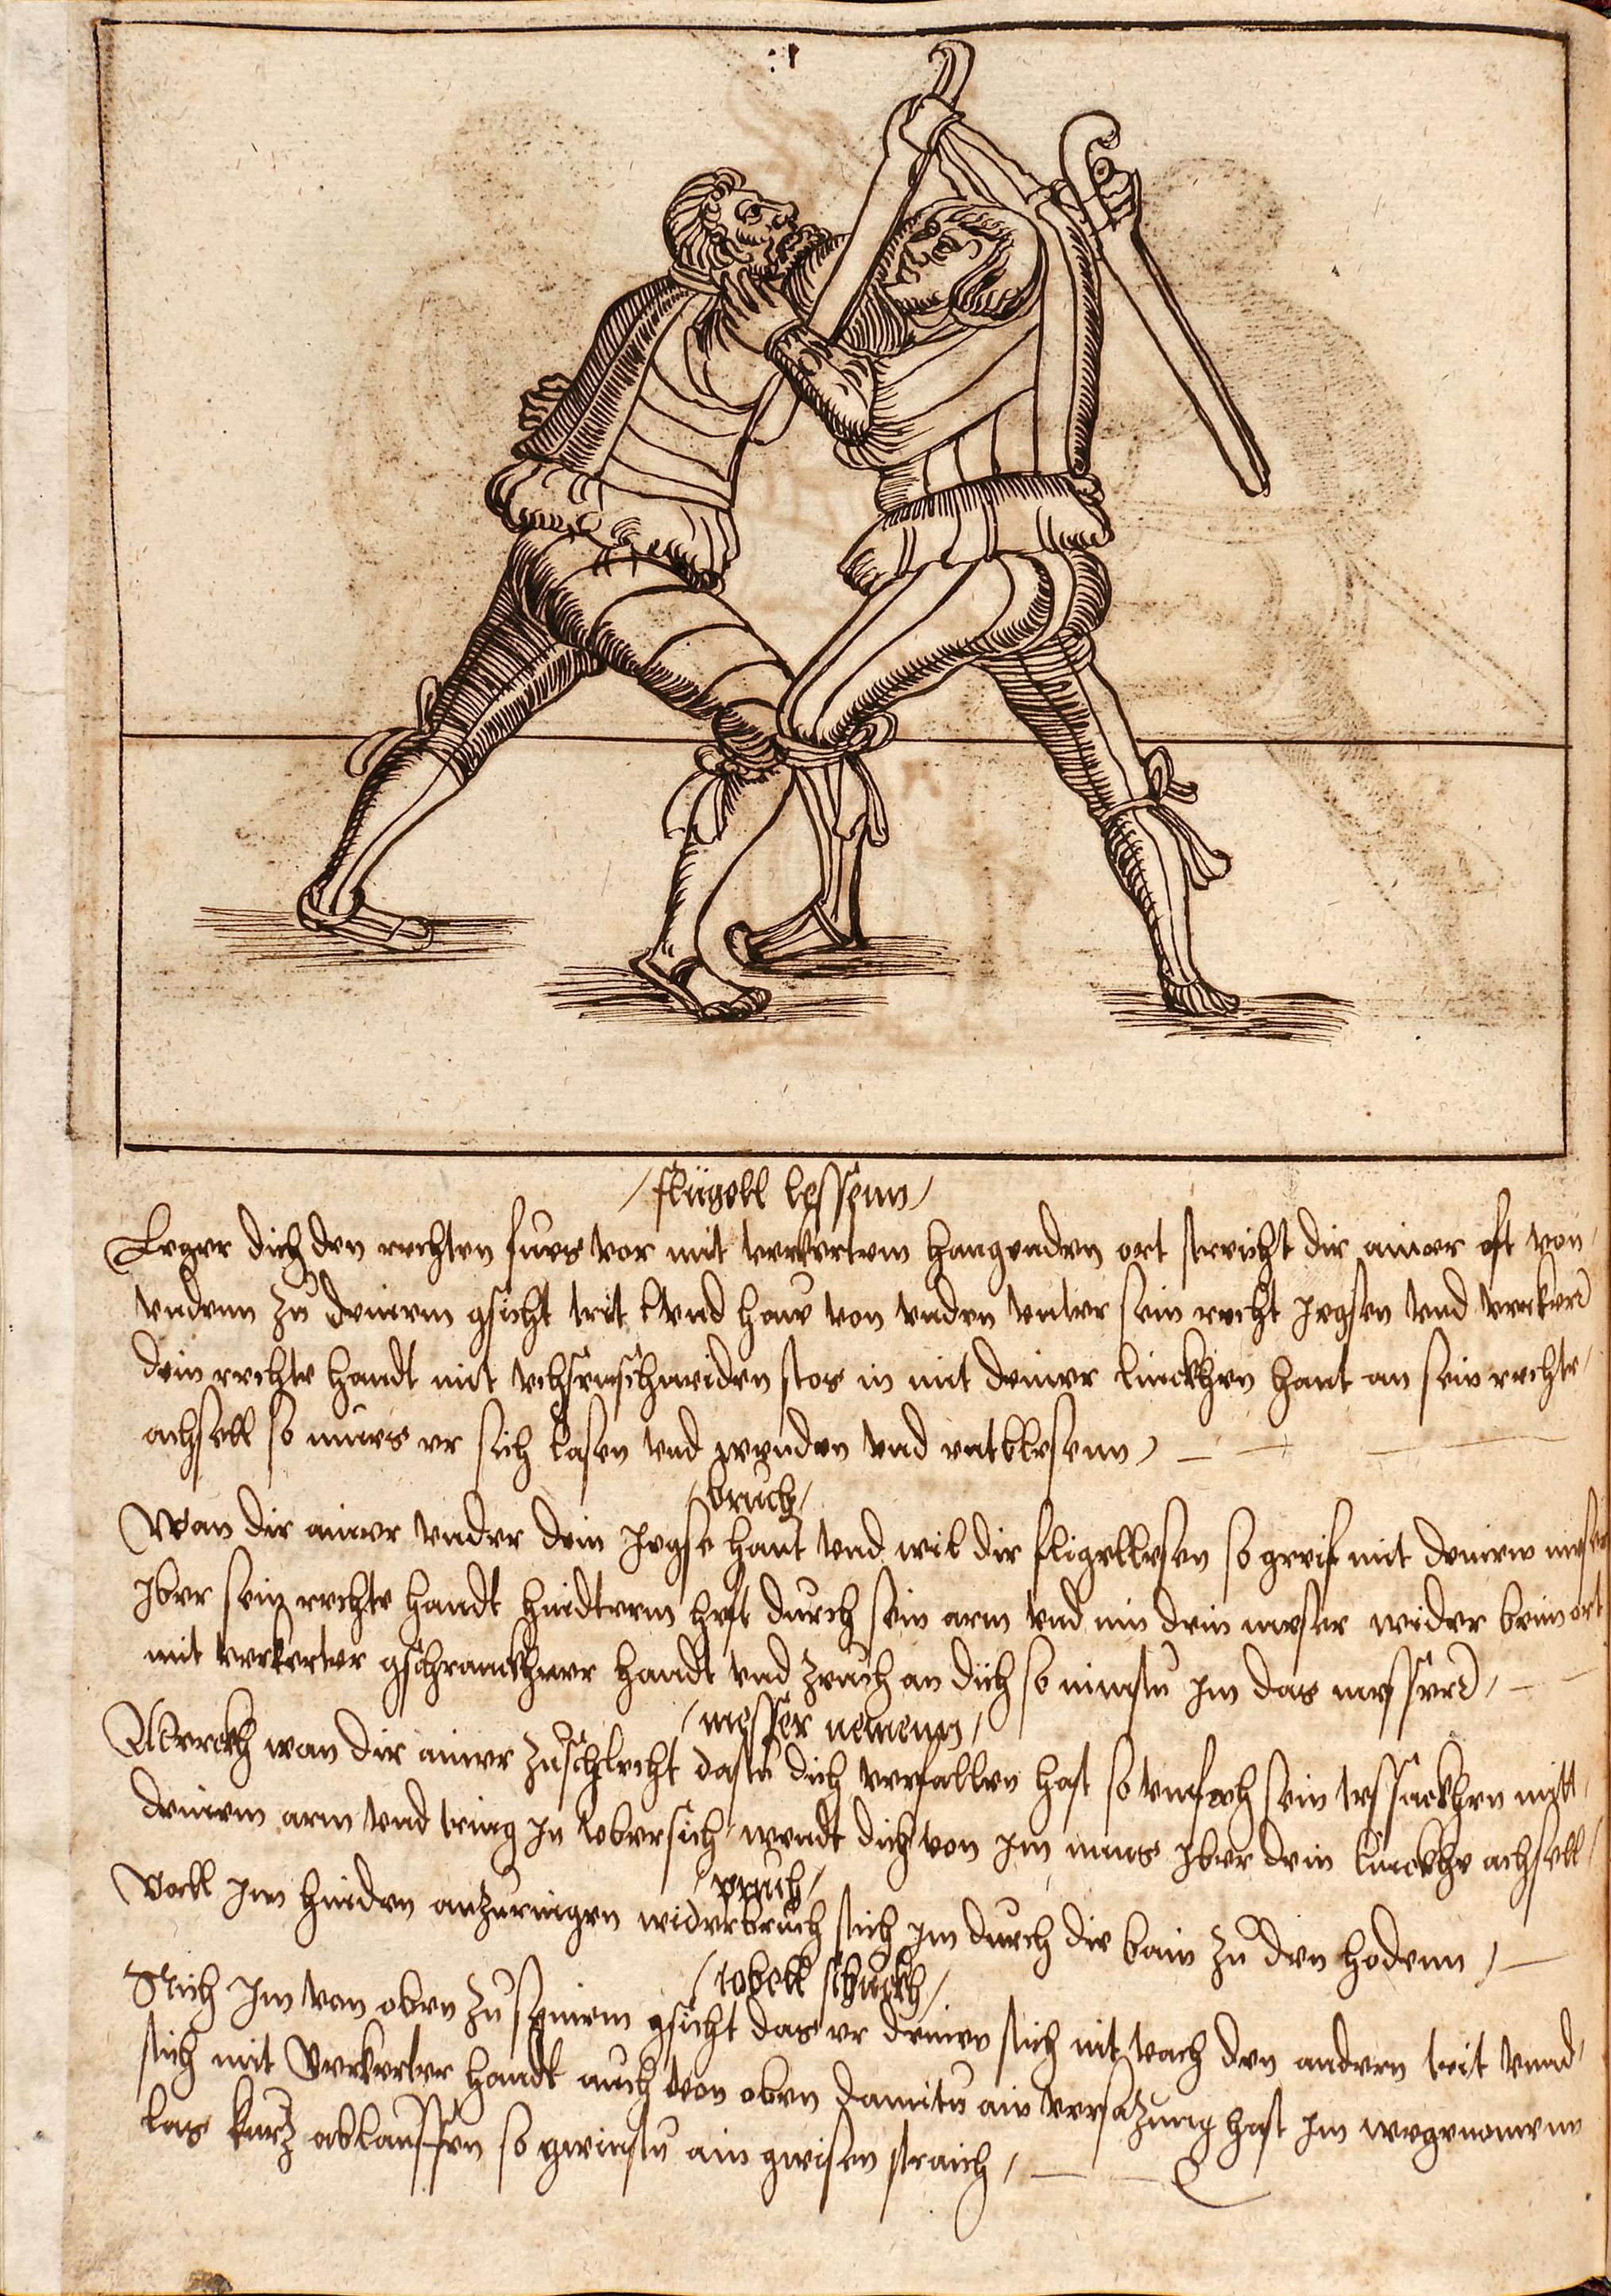 :1
/flügell lessenn/
Leger dich den rechten fues vor mit verkertem hangenden ort streicht dir ainer oft von
undenn zu deinem gsicht trit und haw von unden unter sein recht Jegsen und verker
dein rechte handt mit schneiden stos in mit deiner linckhen hant an sein rechte
achsell so mues er sich lasen und wenden und entblesenn
/bruch/
Wan dir ainer under dein Jegse haut und wil dir fligellesen so greif mit deinem meser
Jber sein rechte handt hindterm heft durch sein arm und nim dein meser wider beim ort
mit verkerter gschranckhter handt und zeuch an dich so nimstu Jm das messer
/messer nemenn/
Merckh wan dir ainer zuschlecht dastu dich verfallen hast so umfach sein mitt
deinem arm und tring In ubersich wendt dich von Jm aus Jber dein linckhe achsell
/pruch/
Jm hinden anzuringen widerbruch stich Jm durch die bain zu den hodenn
/wbell schuckh/
Stich Jm von oben zu seinem gsicht das er deinen stich nit wach den andern trit unnd
stich mit Verkerter handt auch von oben damitu ain versazung hast Jm wegenomenn
las kurz ablauffen so gwinstu ain gwisen straich